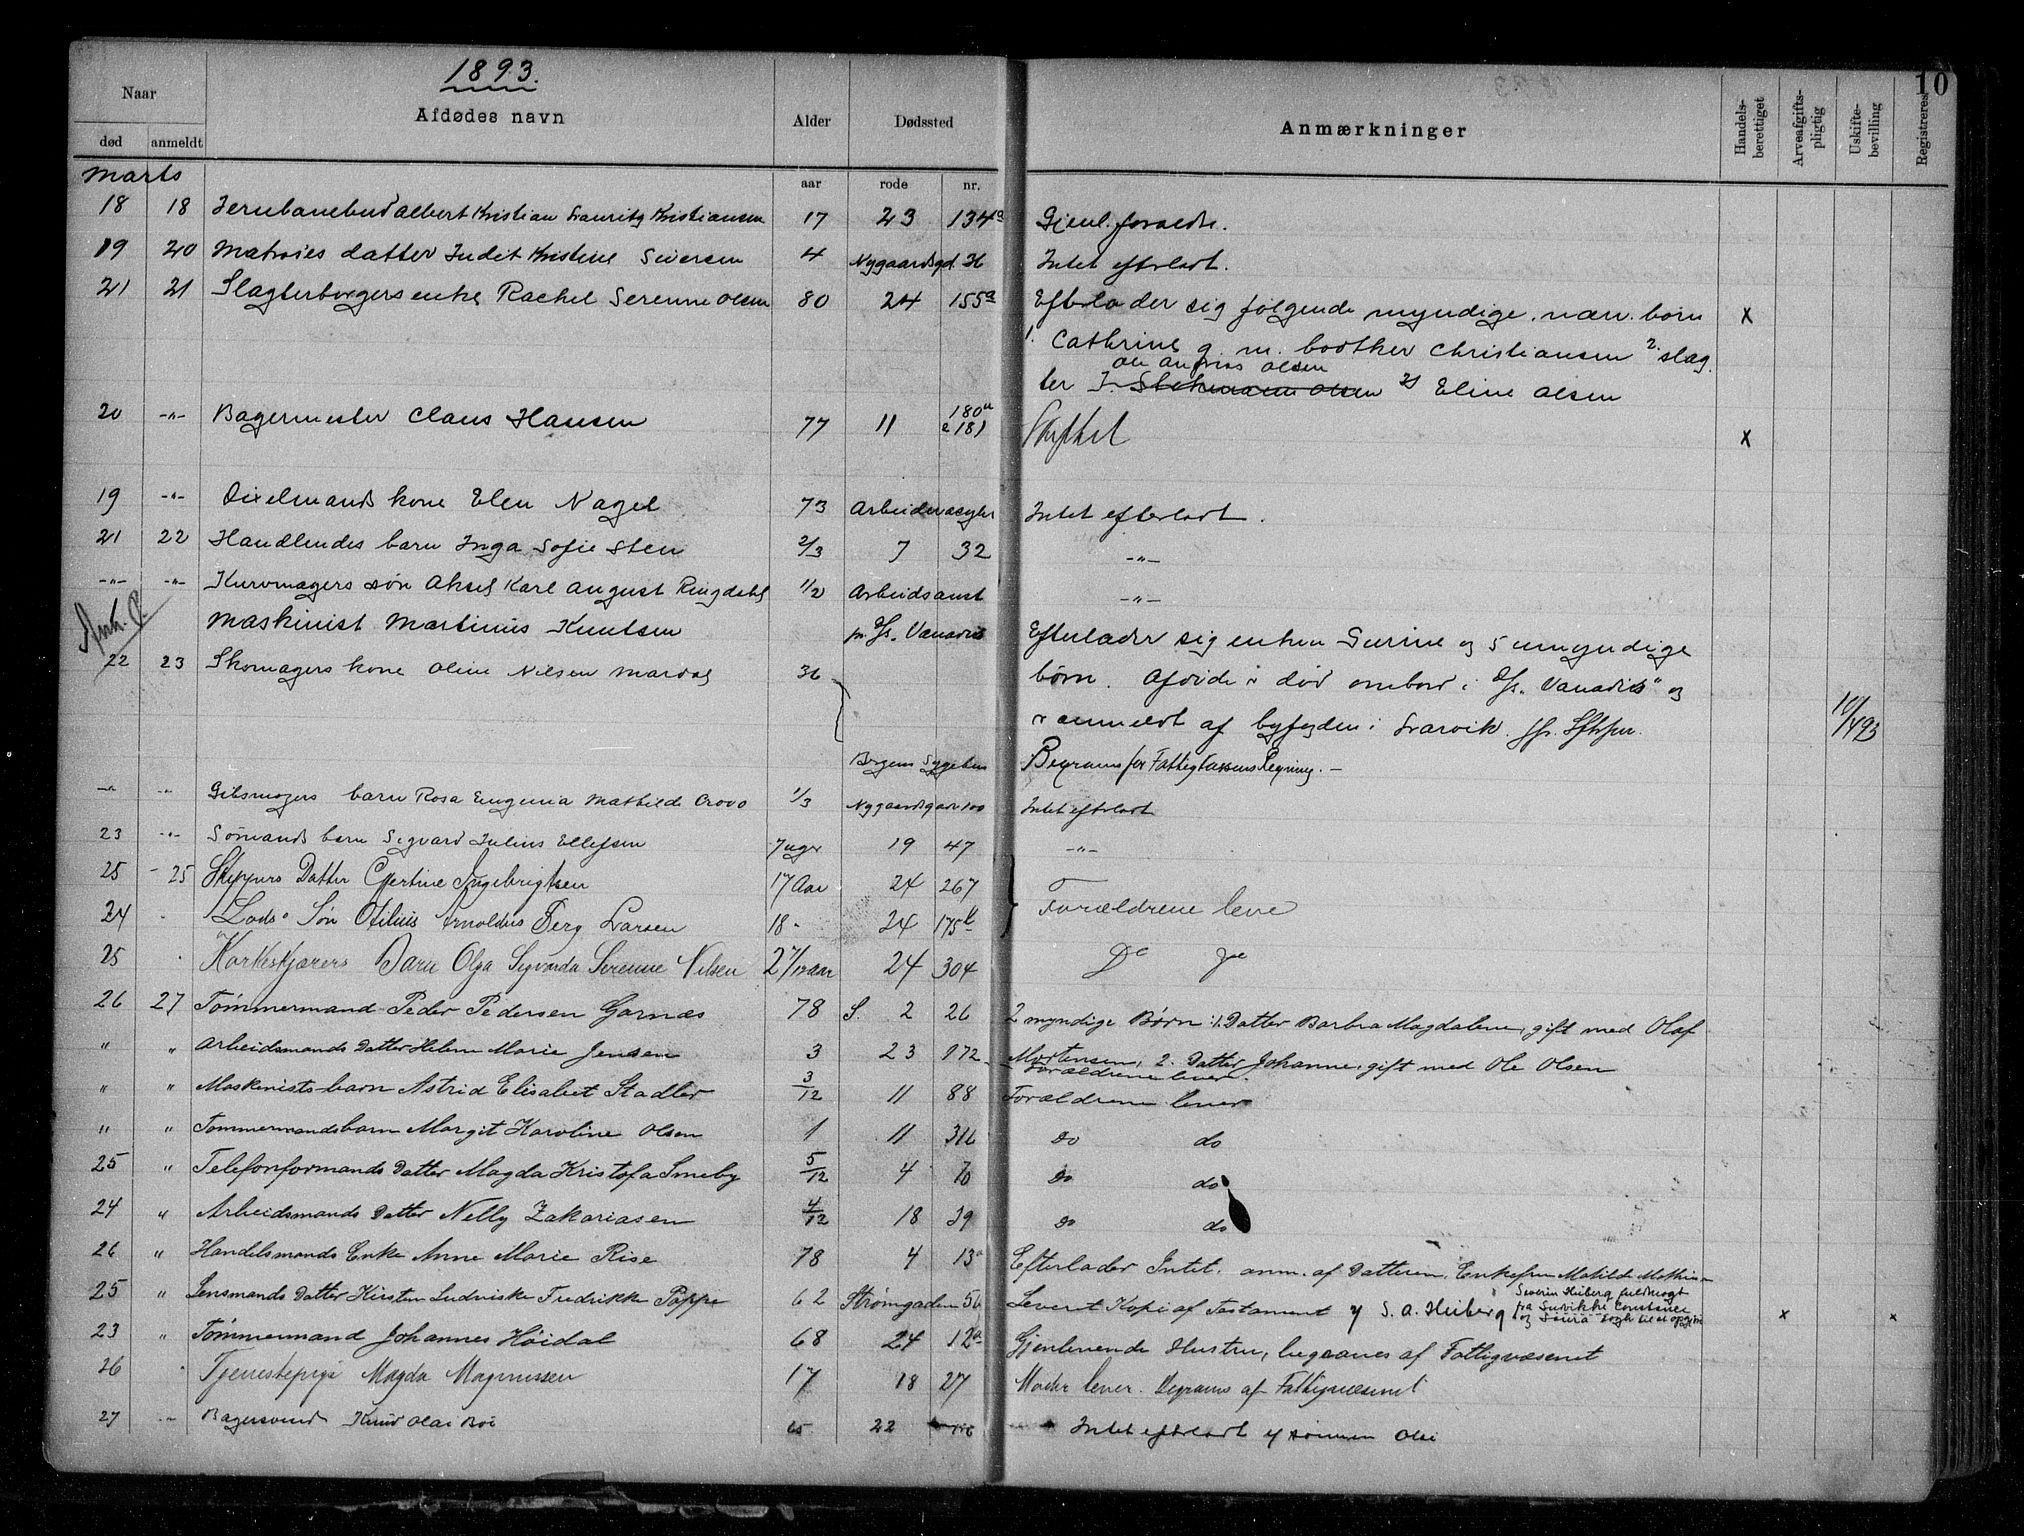 1893.
10
Naar
Afdødes navn
Alder
Dødssted
Anmærkninger
Handels-berettiget
Arveafgifts-pligtig
Uskifte-bevilling
Registreres
død anmeldt
Marts
aar rode nr.
18 18 Jernbanebud Albert Kristian Lauritz Kristiansen 17 23 134a Gjenl. forældre.
19 20 Matroses datter Judit Kristine Siversen 4 Nygaardsgd. 36 Intet efterladt.
21 21 Slagterborgers enke Rachel Serenne Olsen 80 24 155a Efterlader sig følgende myndige nærv. børn x
1. Cathrine g. m. bødker Christiansen 2. slag
Ole Andreas Olsen
ter J. Olsen 3) Eline Olsen
20 -"- Bagermester Claus Hansen 77 11 180a & 181 Skiftet x
19 -"- kone Elen Nagel 73 Arbeiderasylet Intet efterladt.
21 22 Handlendes barn Inga Sofie Sten 2/3 7 32 -"-
-"- -"- Kurvmagers søn Aksel Karl August Ringdahl 1/2 Arbeidsanst -"-
Anh. C.
Maskinist Martinus Knutsen pr. D/s. Vanadis Efterlader sig enken Gurine og 5 umyndige
22 23 Skomagers kone Oline Nilsen Mardal 36 børn. Afdøde er død ombord i D/s. "Vanadis" og
er anmeldt af byfogden i Larvik. 10/4 93
Bergens Sygehus Begraves for Fattigkassens Regning. —
-"- -"- Gibsmagers barn Rosa Eugenia Mathilde Crovo 1/3 Nygaardsgade 100 Intet efterladt
23 -"- Sømands barn Sigvard Julius Ellefsen 7 uger 19 47 -"-
25 25 Skippers Datter Ingebrigtsen 17 Aar 24 267 Forældrene leve
24 Lods Søn Otilius Arnoldus Berg Larsen 18 " 24 175b
25 " Korkeskjærers Barn Olga Sigvarda Serenne Nilsen 2 7/12 aar 24 304 Do Do
26 27 Tømmermand Peder Pedersen Garnæs 78 S. 2 26 2 myndige Børn: 1. Datter Barbra Magdalene, gift med Olaf
" " Arbeidsmands Datter Helene Marie Jensen 3 23 172 Mortensen, 2. Datter Johanne, gift med Ole Olsen
Forældrene lever.
" " Maskinists barn Astrid Elisabet Stadler 3/12 11 88 Forældrene lever
" " Tømmermandsbarn Margit Karoline Olsen 1 11 316 do do
25 " Telefonformands Datter Magda Kristofa Smeby 5/12 4 do do
24 " Arbeidsmands Datter Nelly Zakariasen 4/12 18 39 do do
26 " Handelsmands Enke Anne Marie Rise 78 4 13a Efterlader Intet. anm. af Datteren, Enkefru Matilde Mathiesen
25 " Lensmands Datter Kirsten Ludviske Fredrikke Poppe 62 Strømgaden 56 Levert Kopi af Testament v/ S. A. Heiberg x x
Severin Heiberg fuldmægt
fra Constance
23 " Tømmermand Johannes Høidal 68 24 12a Gjenlevende Hustru, begraves af Fattigvæsenet
26 " Tjenestepige Magda Magnussen 17 18 27 Moder lever. Begraves af Fattigvæsenet
27 -"- Bagersvend Knud Olai Bøe 65 22 Intet efterladt v/ sønnen Olai